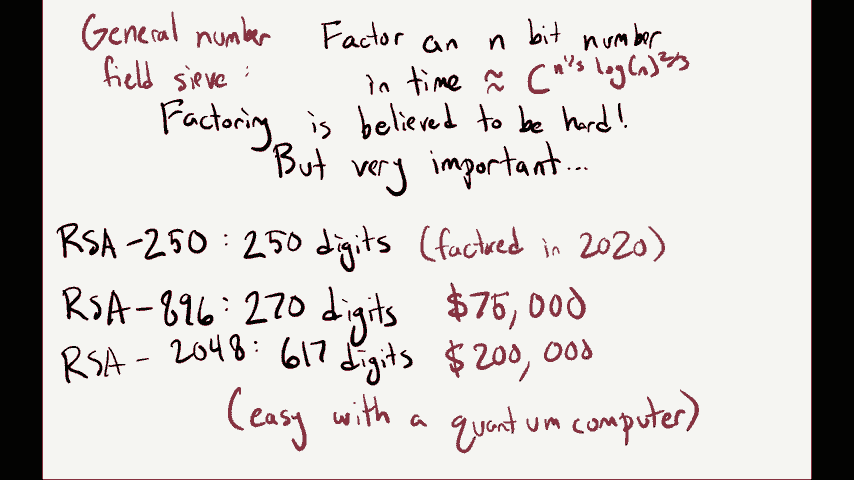 General number Factor an n bit number
field sieve: in time ≈ C^{n^{1/3} log(n)^{2/3}}
Factoring is believed to be hard!
But very important...
RSA-250: 250 digits (factored in 2020)
RSA-896: 270 digits $75,000
RSA-2048: 617 digits $200,000
(easy with a quantum computer)